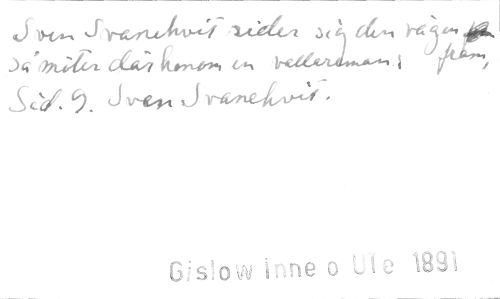 Sven Svanehvit rider sig den vägen fram,
så möter där honom en vallareman;
Sid. 9. Sven Svanehvit.
Gislow Inne o Ute 1891